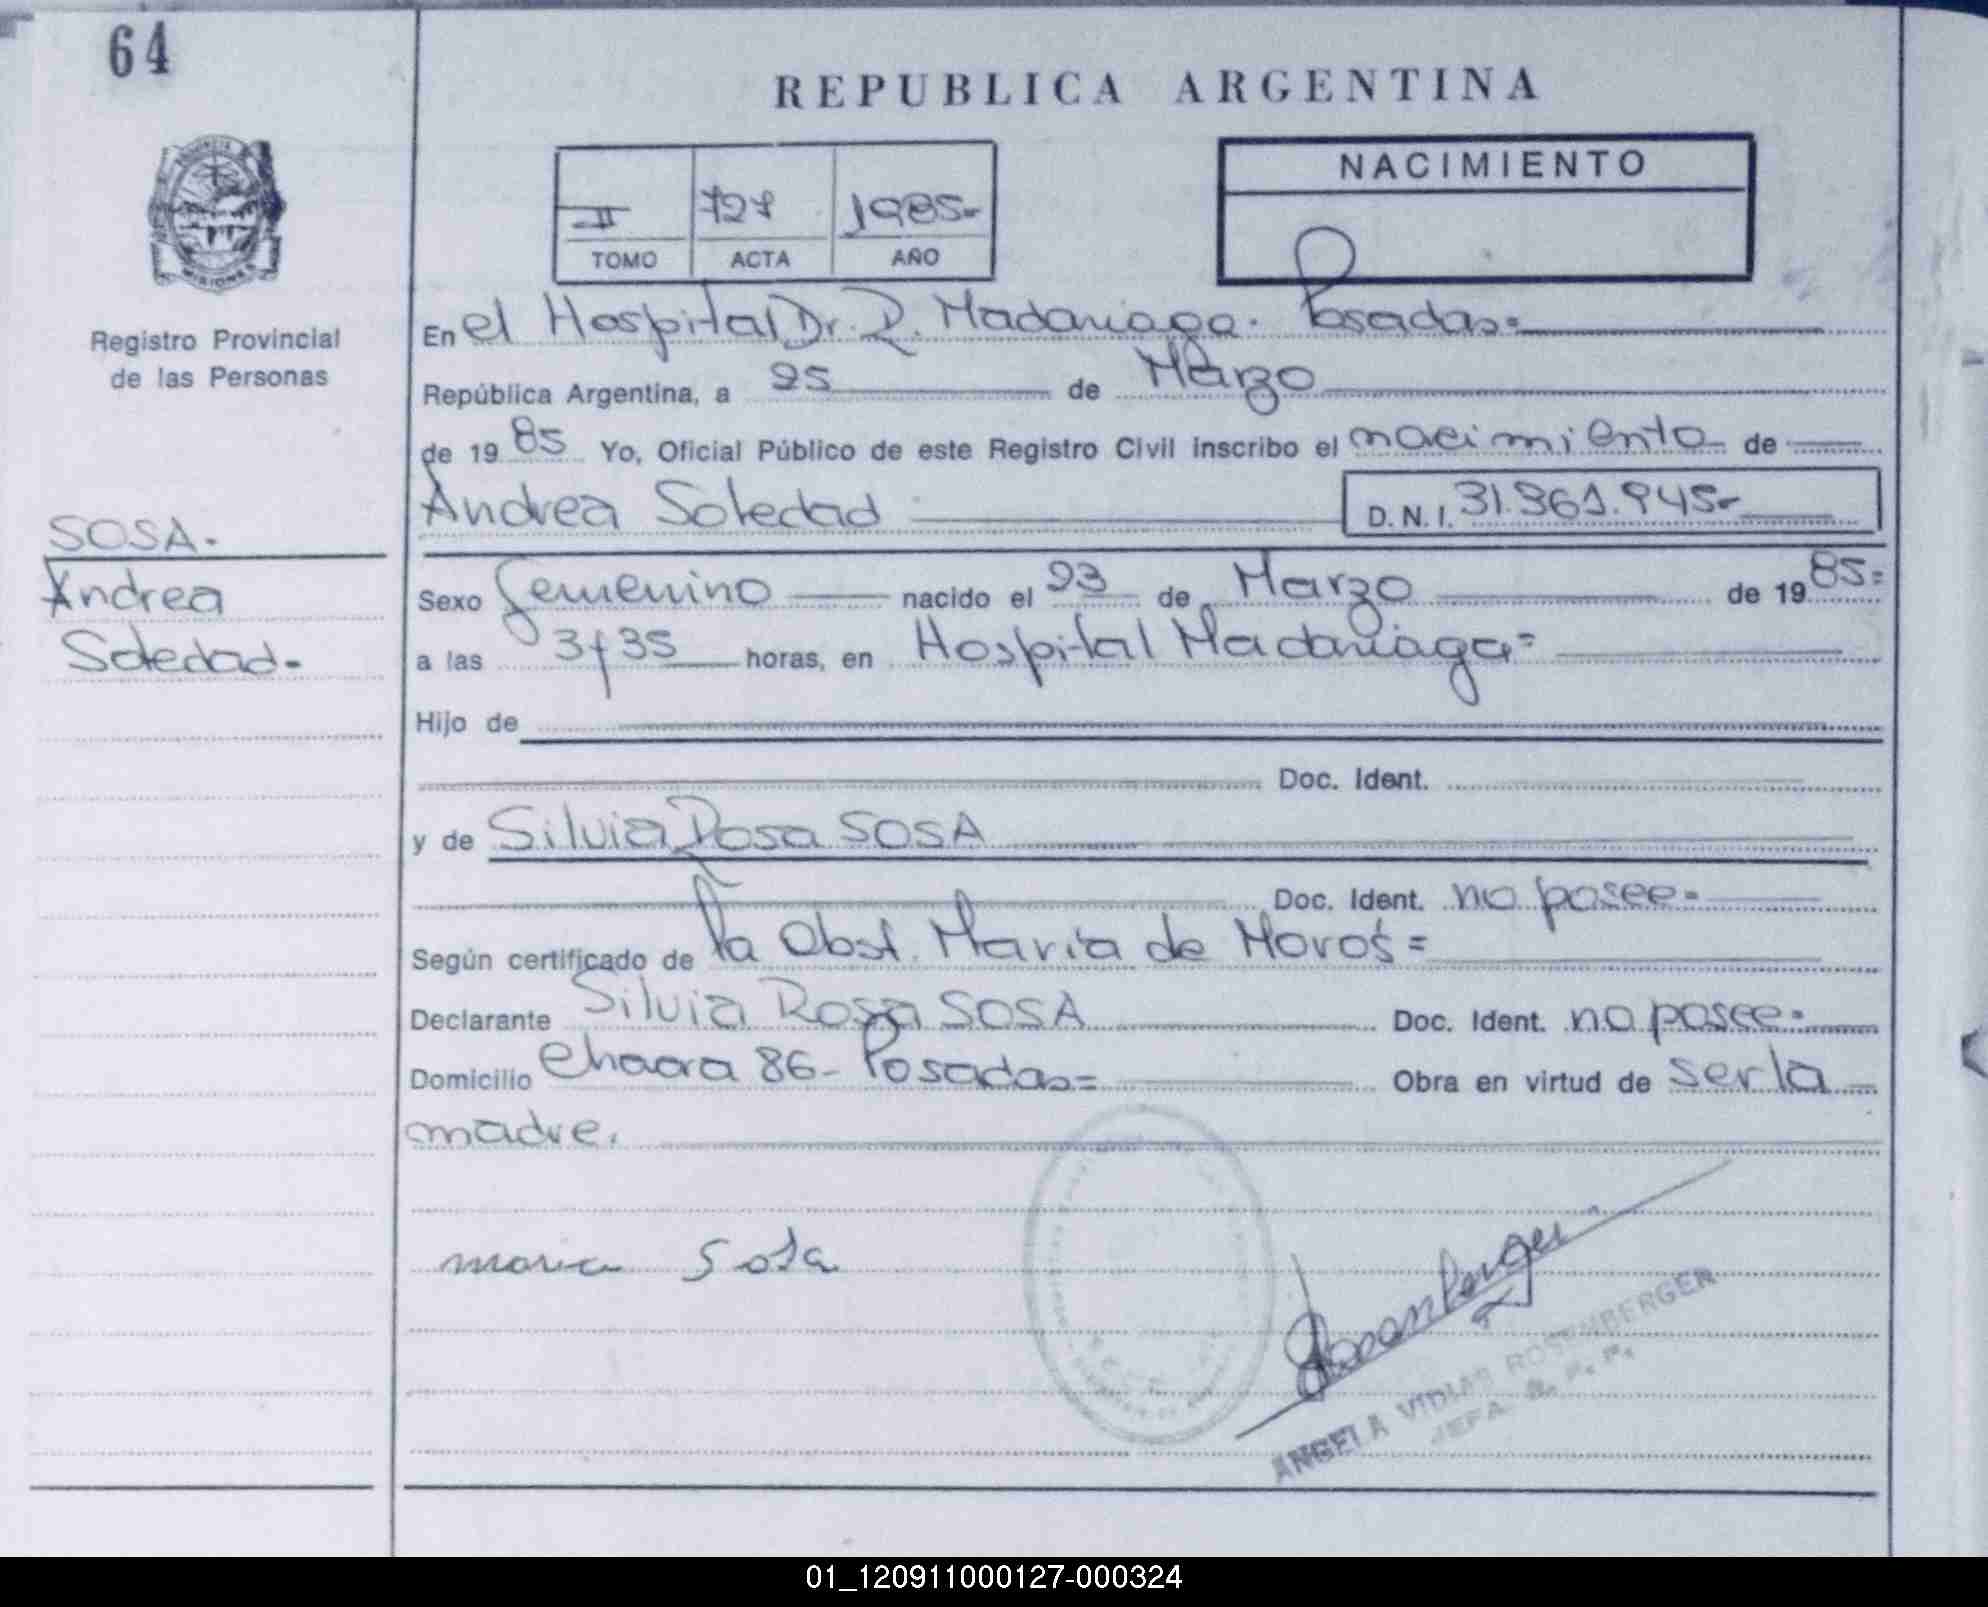 64
REPUBLICA ARGENTINA
NACIMIENTO
II 727 1985-
TOMO ACTA AÑO
Registro Provincial
de las Personas
En el Hospital Dr. R. Madariaga. Posadas=
República Argentina, a 25 de Marzo
de 1985 Yo, Oficial Público de este Registro Civil inscribo el nacimiento de
Andrea Soledad D.N.I. 31.361.945-
SOSA.
Andrea
Soledad-
Sexo femenino nacido el 23 de Marzo de 1985=
a las 3 y 35 horas, en Hospital Madariaga=
Hijo de
Doc. Ident.
y de Silvia Rosa SOSA
Doc. Ident. no posee-
Según certificado de la Obst. Maria de Moros=
Declarante Silvia Rosa SOSA Doc. Ident. no posee-
Domicilio Chacra 86- Posadas= Obra en virtud de ser la
madre.
maria Sosa
Rosemberger
ANGELA VIDIAS ROSEMBERGER
JEFA R. P. P.
01_120911000127-000324